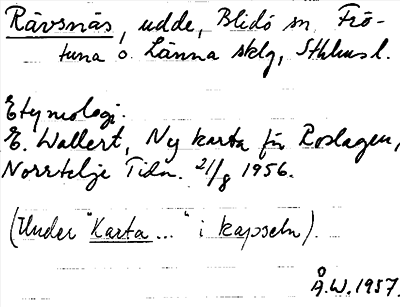 Rävsnäs, udde, Blidö sn, Frö-
tuna o. Länna sklg, Sthlms l.
Etymologi.
E. Wallert, Ny karta för Roslagen,
Norrtelje Tidn. 21/8 1956.
(Under "Karta..." i kapseln).
Å.W. 1957.